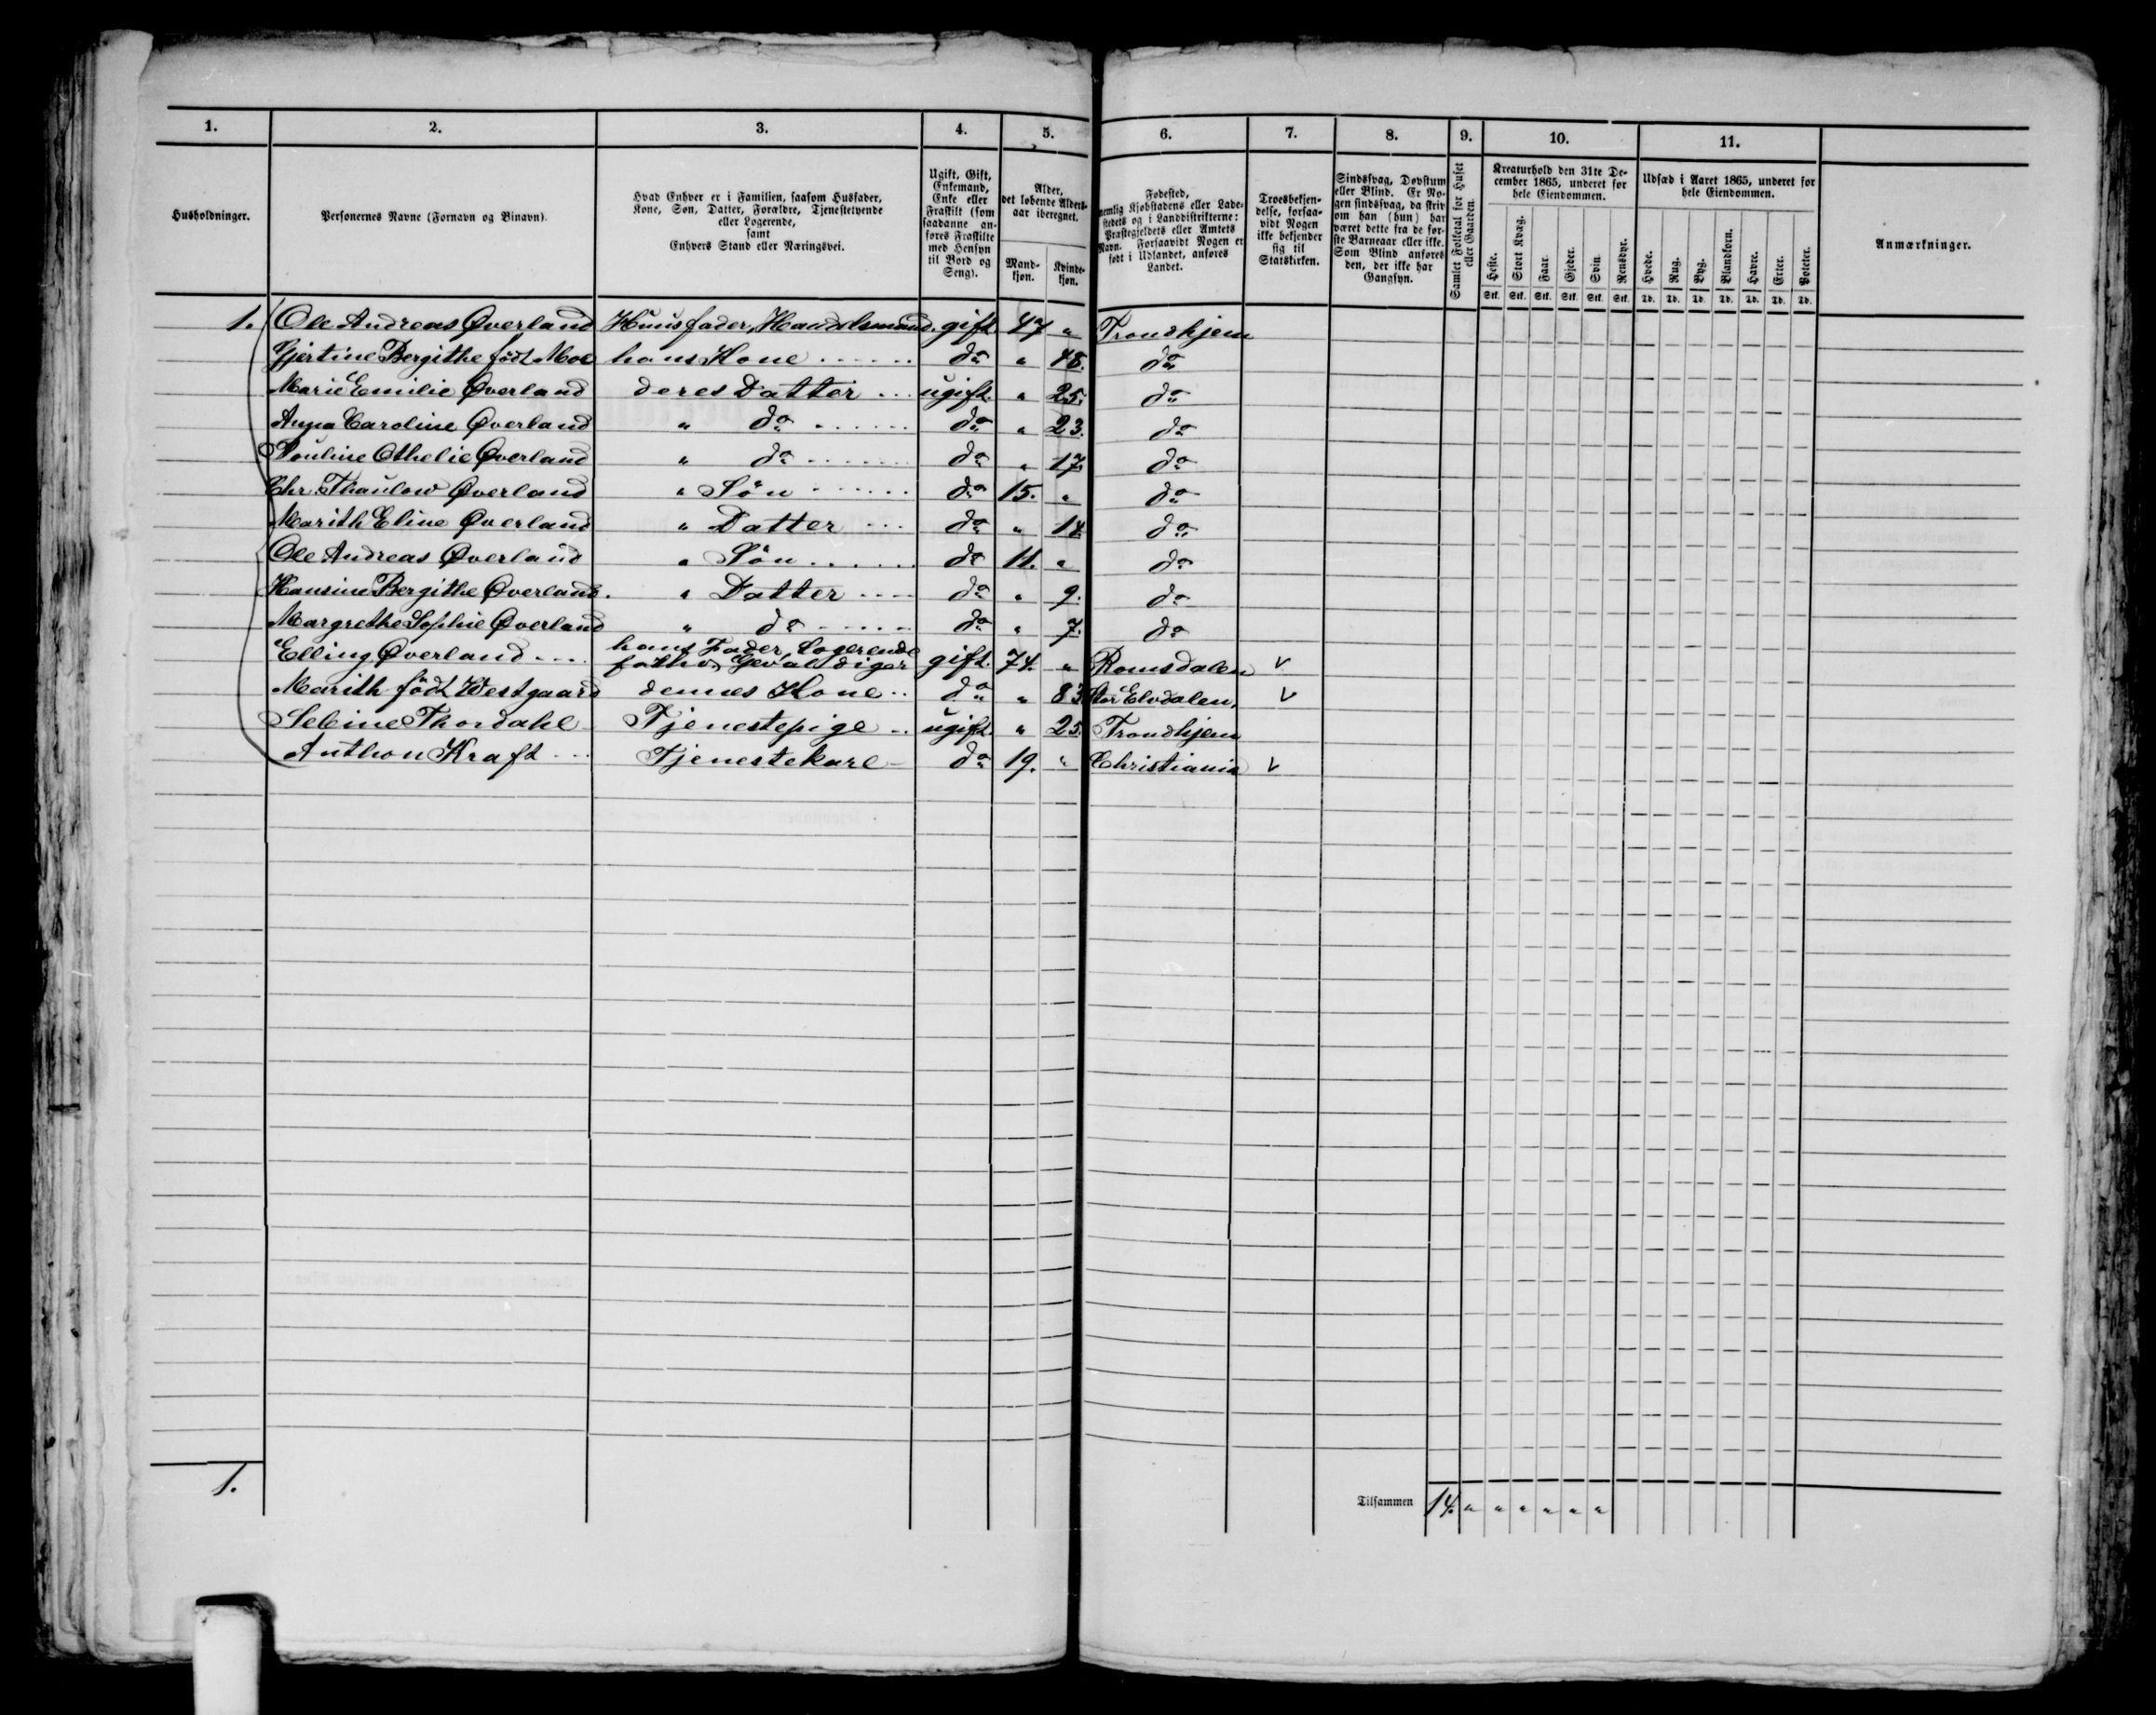 1. 2. 3. 4. 5. 6. 7. 8. 9. 10. 11.
Husholdninger.
Personernes Navne (Fornavn og Binavn).
Hvad Enhver er i Familien, saasom Husfader,
Kone, Søn, Datter, Forældre, Tjenestetyende
eller Logerende,
samt
Enhvers Stand eller Næringsvei.
Ugift, Gift,
Enkemand,
Enke eller
Fraskilt (som
saadanne an-
føres Fraskilte
med Hensyn
til Bord og
Seng).
Alder,
det løbende Alders-
aar iberegnet.
Mand-
kjøn.
Kvinde-
kjøn.
Fødested,
nemlig Kjøbstadens eller Lade-
stedets og i Landdistrikterne:
Præstegjeldets eller Amtets
Navn. Forsaavidt Nogen er
født i Udlandet, anføres
Landet.
Troesbekjen-
delse, forsaa-
vidt Nogen
ikke bekjender
sig til
Statskirken.
Sindssvag, Døvstum
eller Blind. Er No-
gen sindssvag, da skriv
om han (hun) har
været dette fra de før-
ste Barneaar eller ikke.
Som Blind anføres
den, der ikke har
Gangsyn.
Samlet Folketal for Huset
eller Gaarden.
Kreaturhold den 31te De-
cember 1865, underet for
hele Eiendommen.
Heste. Stort Kvæg. Faar. Gjeder. Svin. Rensdyr.
Stk. Stk. Stk. Stk. Stk. Stk.
Udsæd i Aaret 1865, underet for
hele Eiendommen.
Hvede. Rug. Byg. Blandkorn. Havre. Erter. Poteter.
Td. Td. Td. Td. Td. Td. Td.
Anmærkninger.
1. Ole Andreas Øverland Huusfader, Handelsmand. gift 47 " Trondhjem
Gjertine Bergithe født Moe hans Kone do " 48. do
Marie Emilie Øverland deres Datter ugift. " 25. do
Anna Caroline Øverland " do do " 23. do
Pouline Othelie Øverland " do do " 17. do
Chr. Thaulow Øverland " Sön do 15. " do
Marith Eline Øverland " Datter do " 14 do
Ole Andreas Øverland " Sön do 11. " do
Hansine Bergithe Øverland. " Datter do " 9. do
Margrethe Sophie Øverland " do do " 7. do
hans Fader, Logerende
Elling Øverland Gevaldiger gift. 74. " Romsdalen v
Marith født Westgaard dennes Kone do " 83 Elvdalen v
Seline Thordahl Tjenestepige ugift. " 25. Trondhjem
Anthon Kraft Tjenestekarl do 19. " Christiania v
1.
Tilsammen 14. " " " " " "